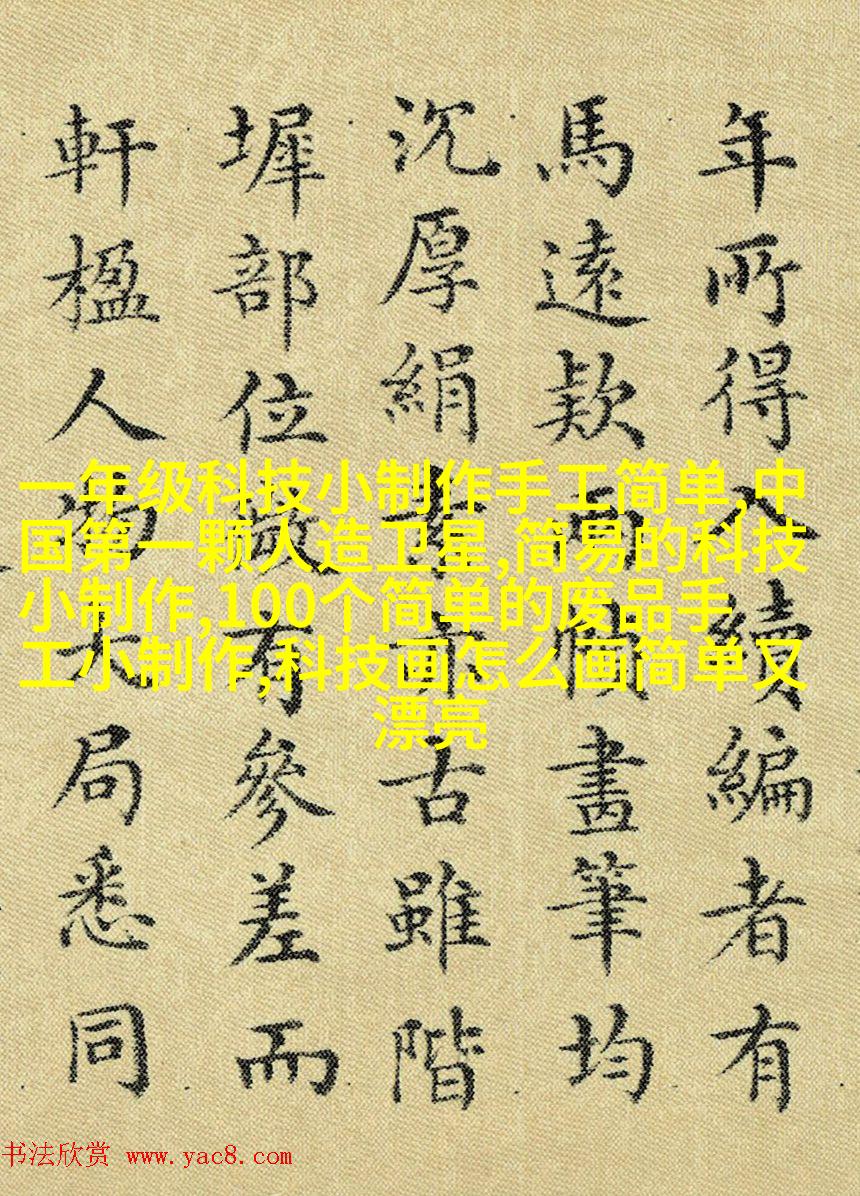 年所得入續編者有
馬遠款兩幀畫筆均
沉厚絹素亦古雖階
墀部位微有參差而
軒楹人物大局悉同
一年级科技小制作手工简单,中
国第一颗人造卫星,简易的科技
小制作,100个简单的废品手
工小制作,科技画怎么画简单又
漂亮
书法欣赏 www.yac8.com